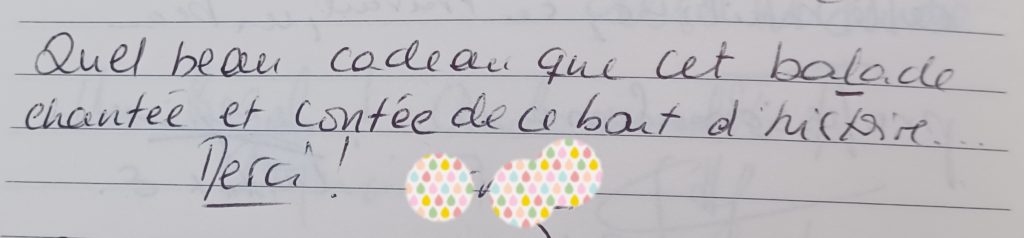 Quel beau cadeau que cet balade
chantée et contée de ce bout d'histoire...
Merci !